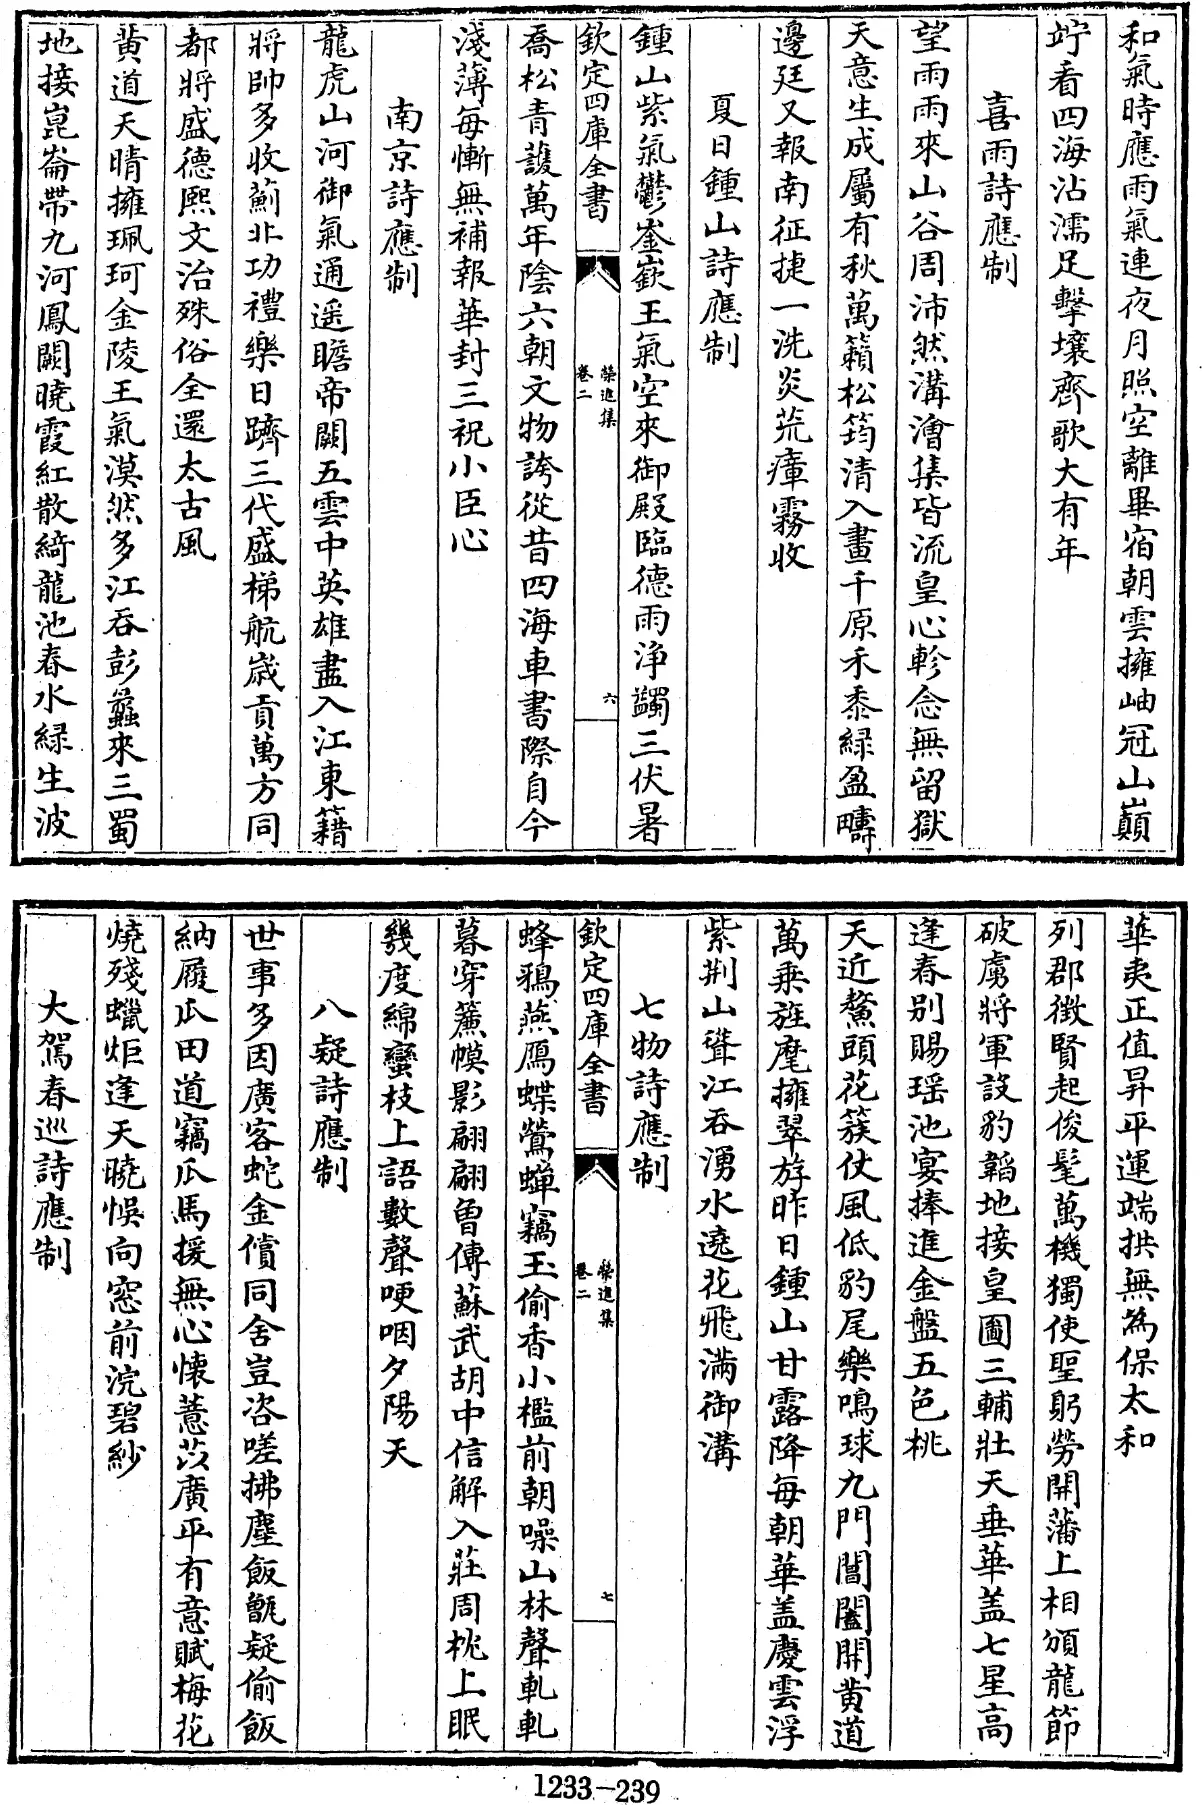 和氣時應雨氣連夜月照空離畢宿朝雲擁岫冠山巔
竚看四海沾濡足擊壤齊歌大有年
喜雨詩應制
望雨雨來山谷周沛然溝澮集皆流皇心軫念無留獄
天意生成屬有秋萬籟松筠清入畫千原禾黍緑盈疇
邊廷又報南征捷一洗炎荒瘴霧收
夏日鍾山詩應制
鍾山紫氣鬱崟嶔王氣空來御殿臨德雨浄蠲三伏暑
欽定四庫全書
榮進集
卷二
六
喬松青護萬年陰六朝文物誇從昔四海車書際自今
淺薄每慚無補報華封三祝小臣心
南京詩應制
龍虎山河御氣通遥瞻帝闕五雲中英雄盡入江東籍
將帥多收薊北功禮樂日躋三代盛梯航嵗貢萬方同
都將盛德熙文治殊俗全還太古風
黄道天晴擁珮珂金陵王氣漠然多江吞彭蠡來三蜀
地接崑崙帶九河鳳闕曉霞紅散綺龍池春水緑生波
華夷正值昇平運端拱無為保太和
列郡徴賢起俊髦萬機獨使聖躬勞開藩上相頒龍節
破虜將軍設豹韜地接皇圖三輔壯天垂華盖七星高
逢春别賜瑶池宴捧進金盤五色桃
天近鰲頭花簇仗風低豹尾樂鳴球九門閶闔開黄道
萬乗旌麾擁翠斿昨日鍾山甘露降每朝華盖慶雲浮
紫荆山聳江吞湧水遶花飛滿御溝
七物詩應制
欽定四庫全書
榮進集
卷二
七
蜂鴉燕鴈蝶鶯蟬竊玉偷香小檻前朝噪山林聲軋軋
暮穿簾幙影翩翩曾傳蘇武胡中信解入莊周枕上眠
幾度綿蠻枝上語數聲哽咽夕陽天
八疑詩應制
世事多因廣客蛇金償同舍豈咨嗟拂塵飯甑疑偷飯
納履瓜田道竊瓜馬援無心懐薏苡廣平有意賦梅花
燒殘蠟炬逢天曉悞向窓前浣碧紗
大駕春巡詩應制
1233-239